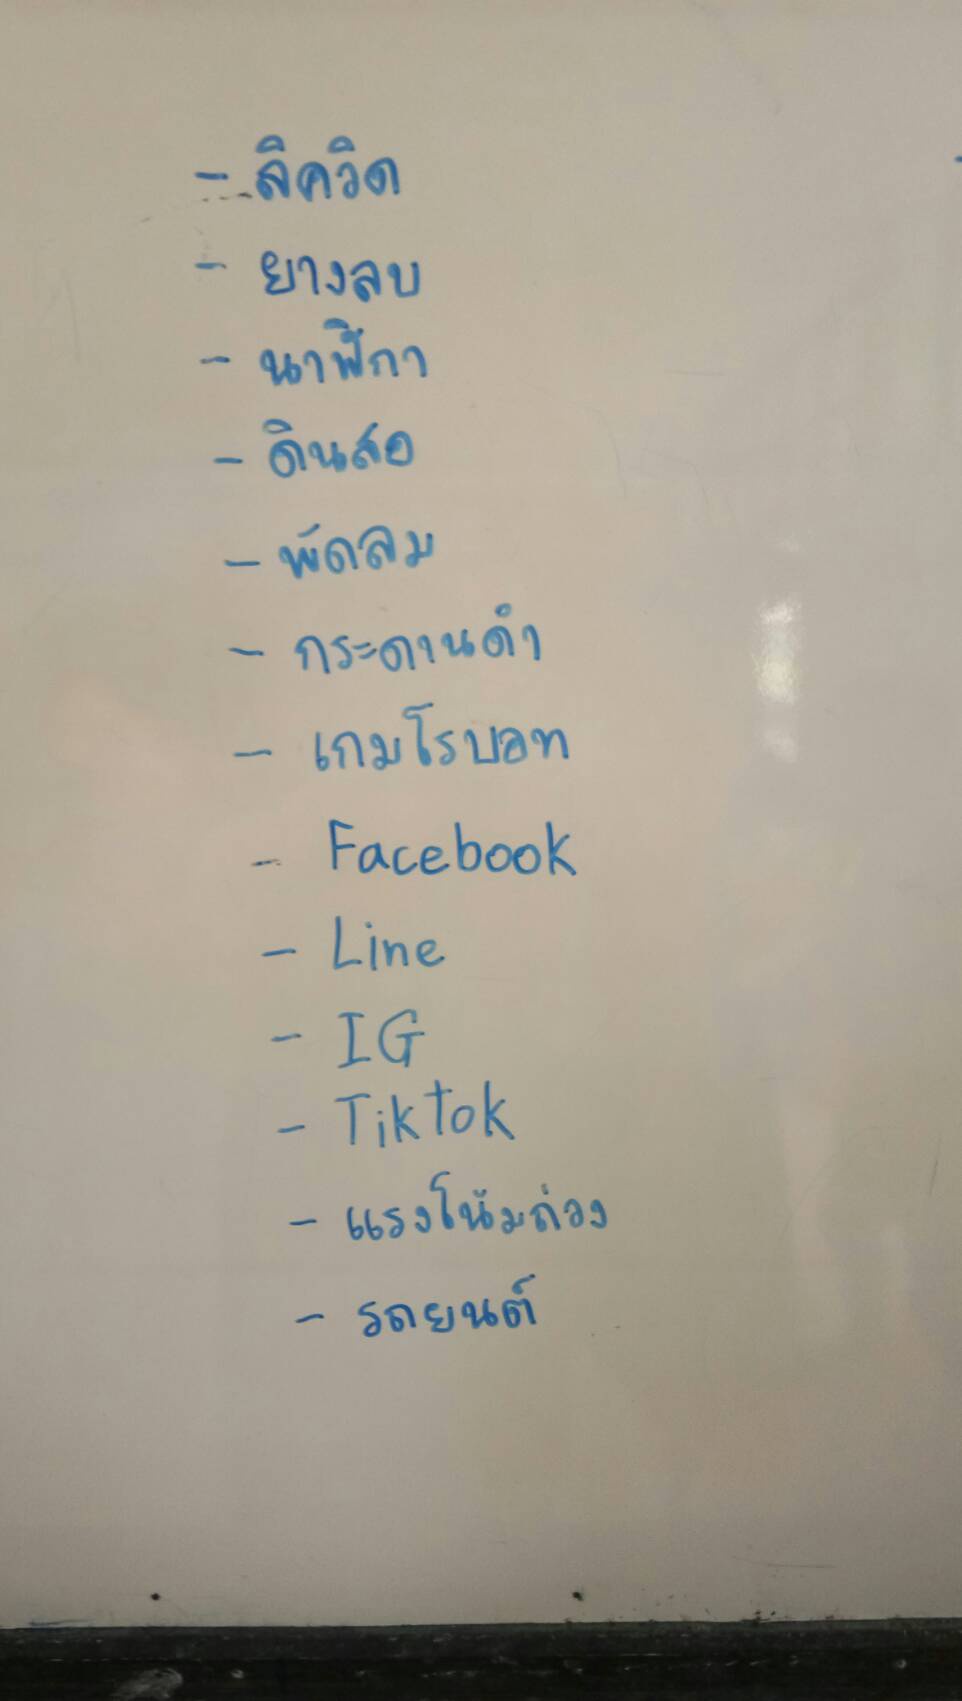 - ลิควิด
- ยางลบ
- นาฬิกา
- ดินสอ
- พัดลม
- กระดานดำ
- เกมโรบอท
- Facebook
- Line
- IG
- Tiktok
- แรงโน้มถ่วง
- รถยนต์